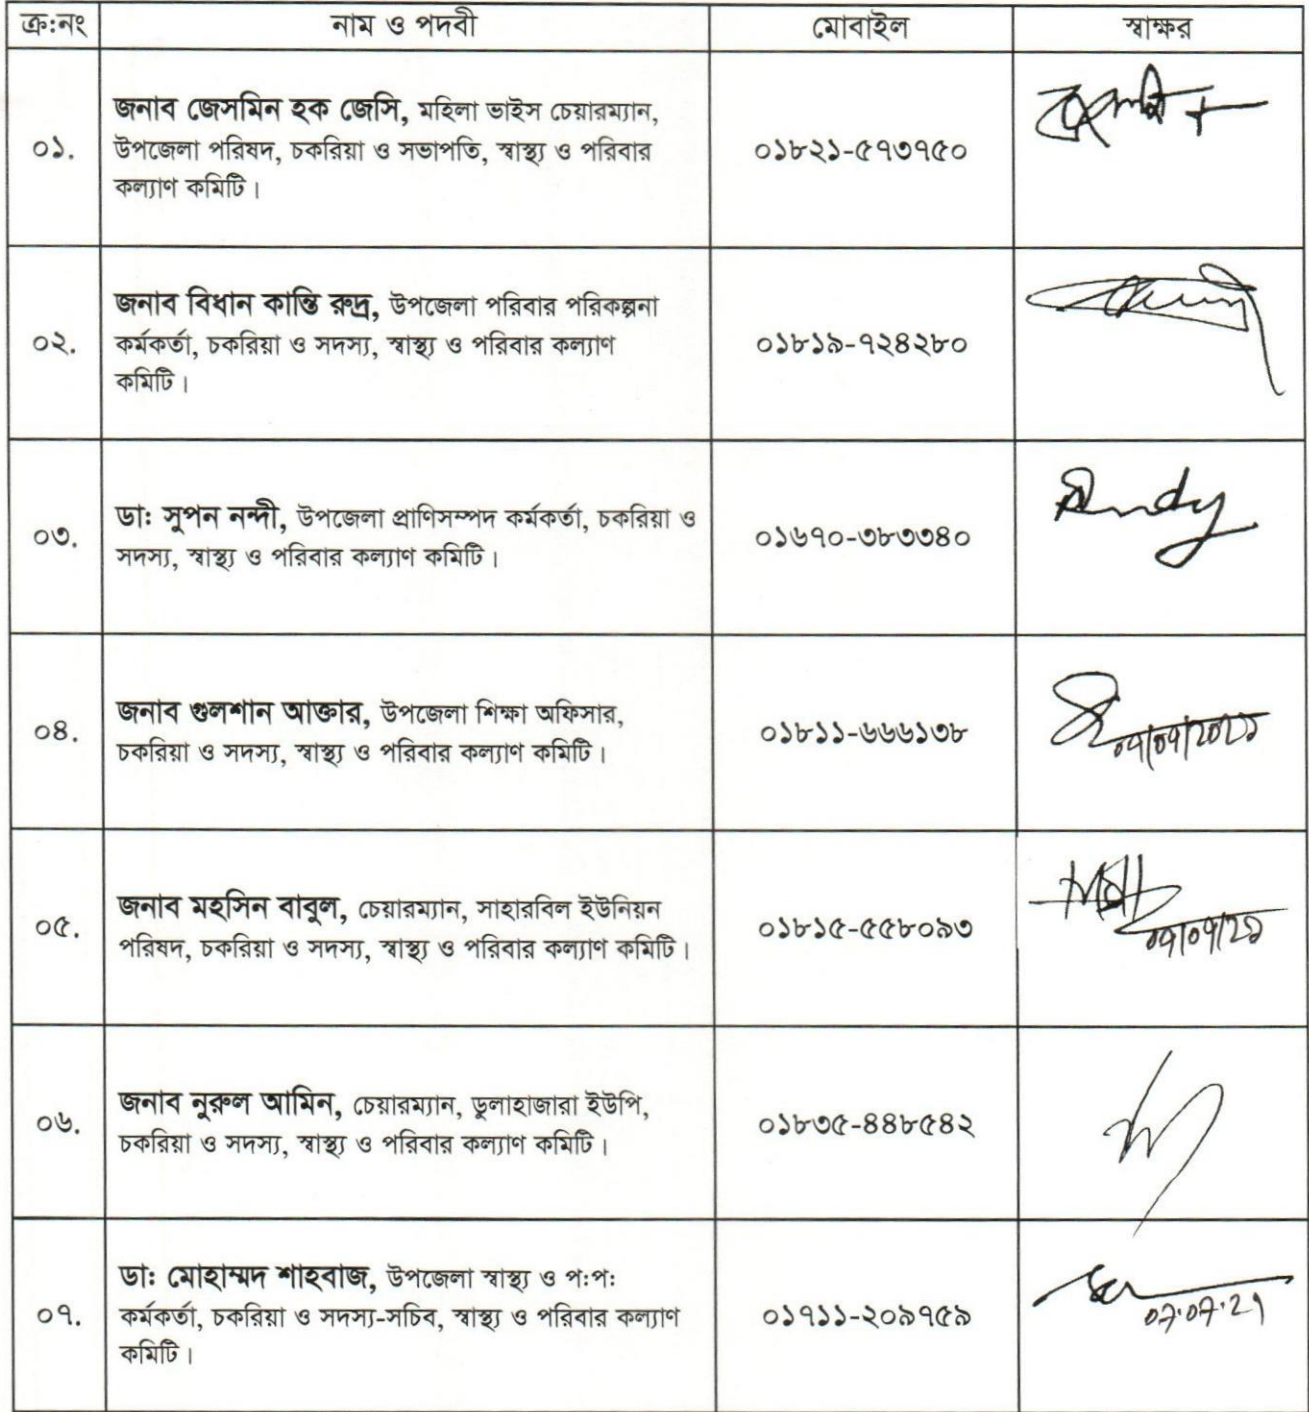 ক্র:নং নাম ও পদবী মোবাইল স্বাক্ষর
জনাব জেসমিন হক জেসি, মহিলা ভাইস চেয়ারম্যান,
০১. উপজেলা পরিষদ, চকরিয়া ও সভাপতি, স্বাস্থ্য ও পরিবার ০১৮২১-৫৭৩৭৫০
কল্যাণ কমিটি।
জনাব বিধান কান্তি রুদ্র, উপজেলা পরিবার পরিকল্পনা
০২. কর্মকর্তা, চকরিয়া ও সদস্য, স্বাস্থ্য ও পরিবার কল্যাণ ০১৮১৯-৭২৪২৮০
কমিটি।
ডা: সুপন নন্দী, উপজেলা প্রাণিসম্পদ কর্মকর্তা, চকরিয়া ও
০৩. সদস্য, স্বাস্থ্য ও পরিবার কল্যাণ কমিটি। ০১৬৭০-৩৮৩৩৪০
জনাব গুলশান আক্তার, উপজেলা শিক্ষা অফিসার,
০৪. চকরিয়া ও সদস্য, স্বাস্থ্য ও পরিবার কল্যাণ কমিটি। ০১৮১১-৬৬৬১৩৮
০৭/০৭/২০২১
জনাব মহসিন বাবুল, চেয়ারম্যান, সাহারবিল ইউনিয়ন
০৫. পরিষদ, চকরিয়া ও সদস্য, স্বাস্থ্য ও পরিবার কল্যাণ কমিটি। ০১৮১৫-৫৫৮০৯৩
০৭/০৭/২১
জনাব নুরুল আমিন, চেয়ারম্যান, ডুলাহাজারা ইউপি,
০৬. চকরিয়া ও সদস্য, স্বাস্থ্য ও পরিবার কল্যাণ কমিটি। ০১৮৩৫-৪৪৮৫৪২
ডা: মোহাম্মদ শাহবাজ, উপজেলা স্বাস্থ্য ও প:প:
০৭. কর্মকর্তা, চকরিয়া ও সদস্য-সচিব, স্বাস্থ্য ও পরিবার কল্যাণ ০১৭১১-২০৯৭৫৯ 07.07.21
কমিটি।